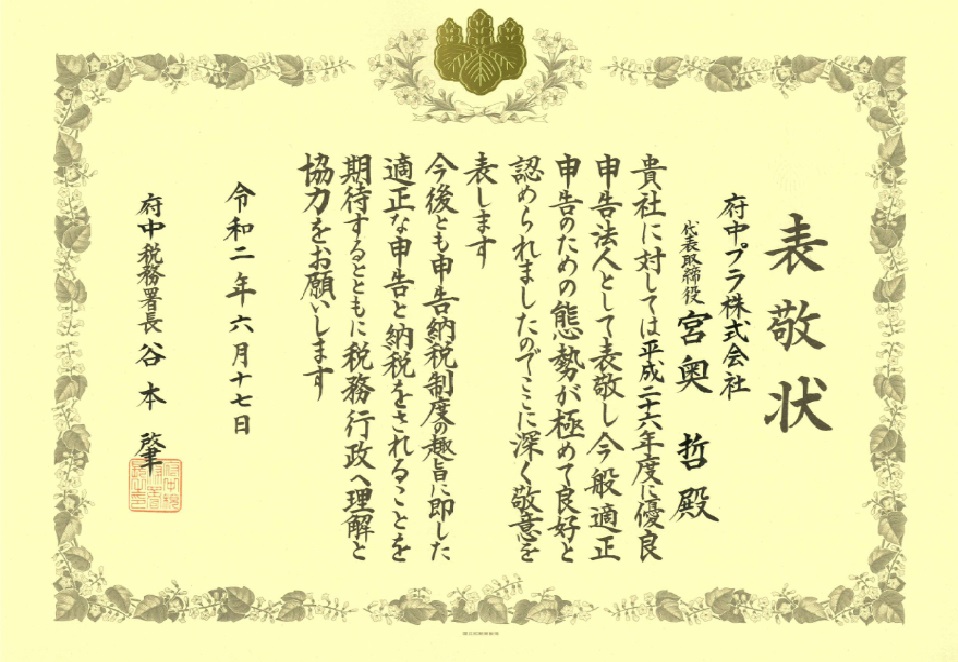 表敬状
府中プラ株式会社
代表取締役 宮奥 哲 殿
貴社に対しては平成二十六年度に優良
申告法人として表敬し今般適正
申告のための態勢が極めて良好と
認められましたのでここに深く敬意を
表します
今後とも申告納税制度の趣旨に即した
適正な申告と納税をされることを
期待するとともに税務行政へ理解と
協力をお願いします
令和二年六月十七日
府中税務署長 谷本 肇